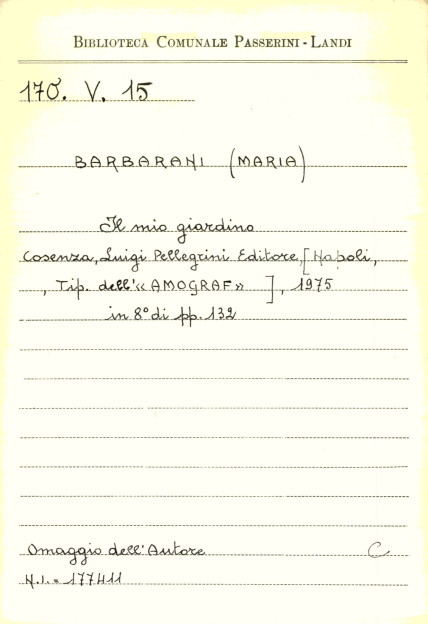 BIBLIOTECA COMUNALE PASSERINI - LANDI
170. V. 15
BARBARANI (MARIA)
Il mio giardino
Cosenza, Luigi Pellegrini Editore, [Napoli,
, Tip. dell'«AMOGRAF» ], 1975
in 8° di pp. 132
Omaggio dell'Autore C
N.I. = 177411